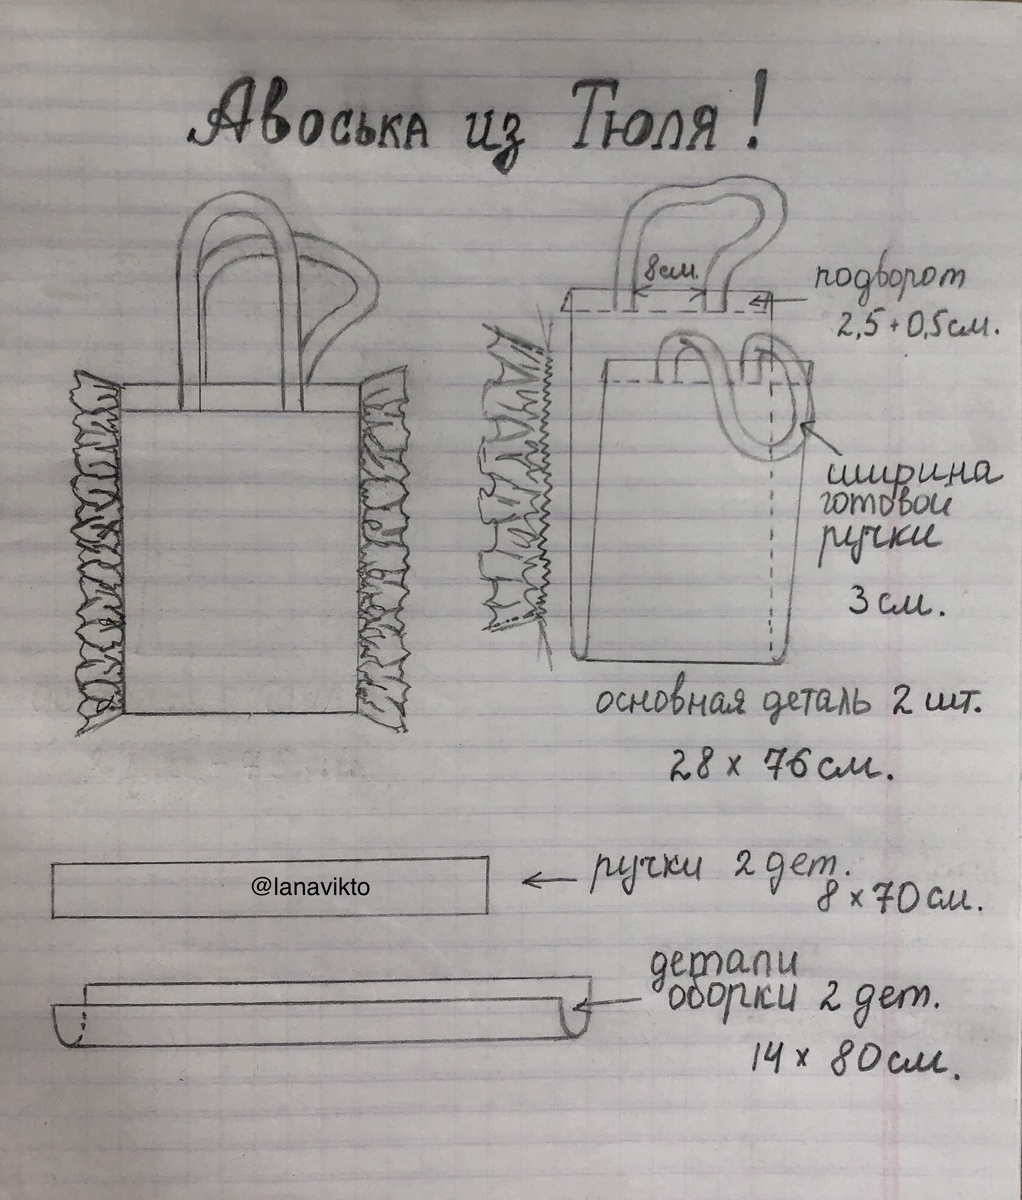 Авоська из Тюля!
8см.
подворот
2,5+0,5см.
ширина
готовой
ручки
3 см.
основная деталь 2 шт.
28 х 76 см.
@lanavikto
ручки 2 дет.
8 х 70 см.
детали
оборки 2 дет.
14 х 80 см.